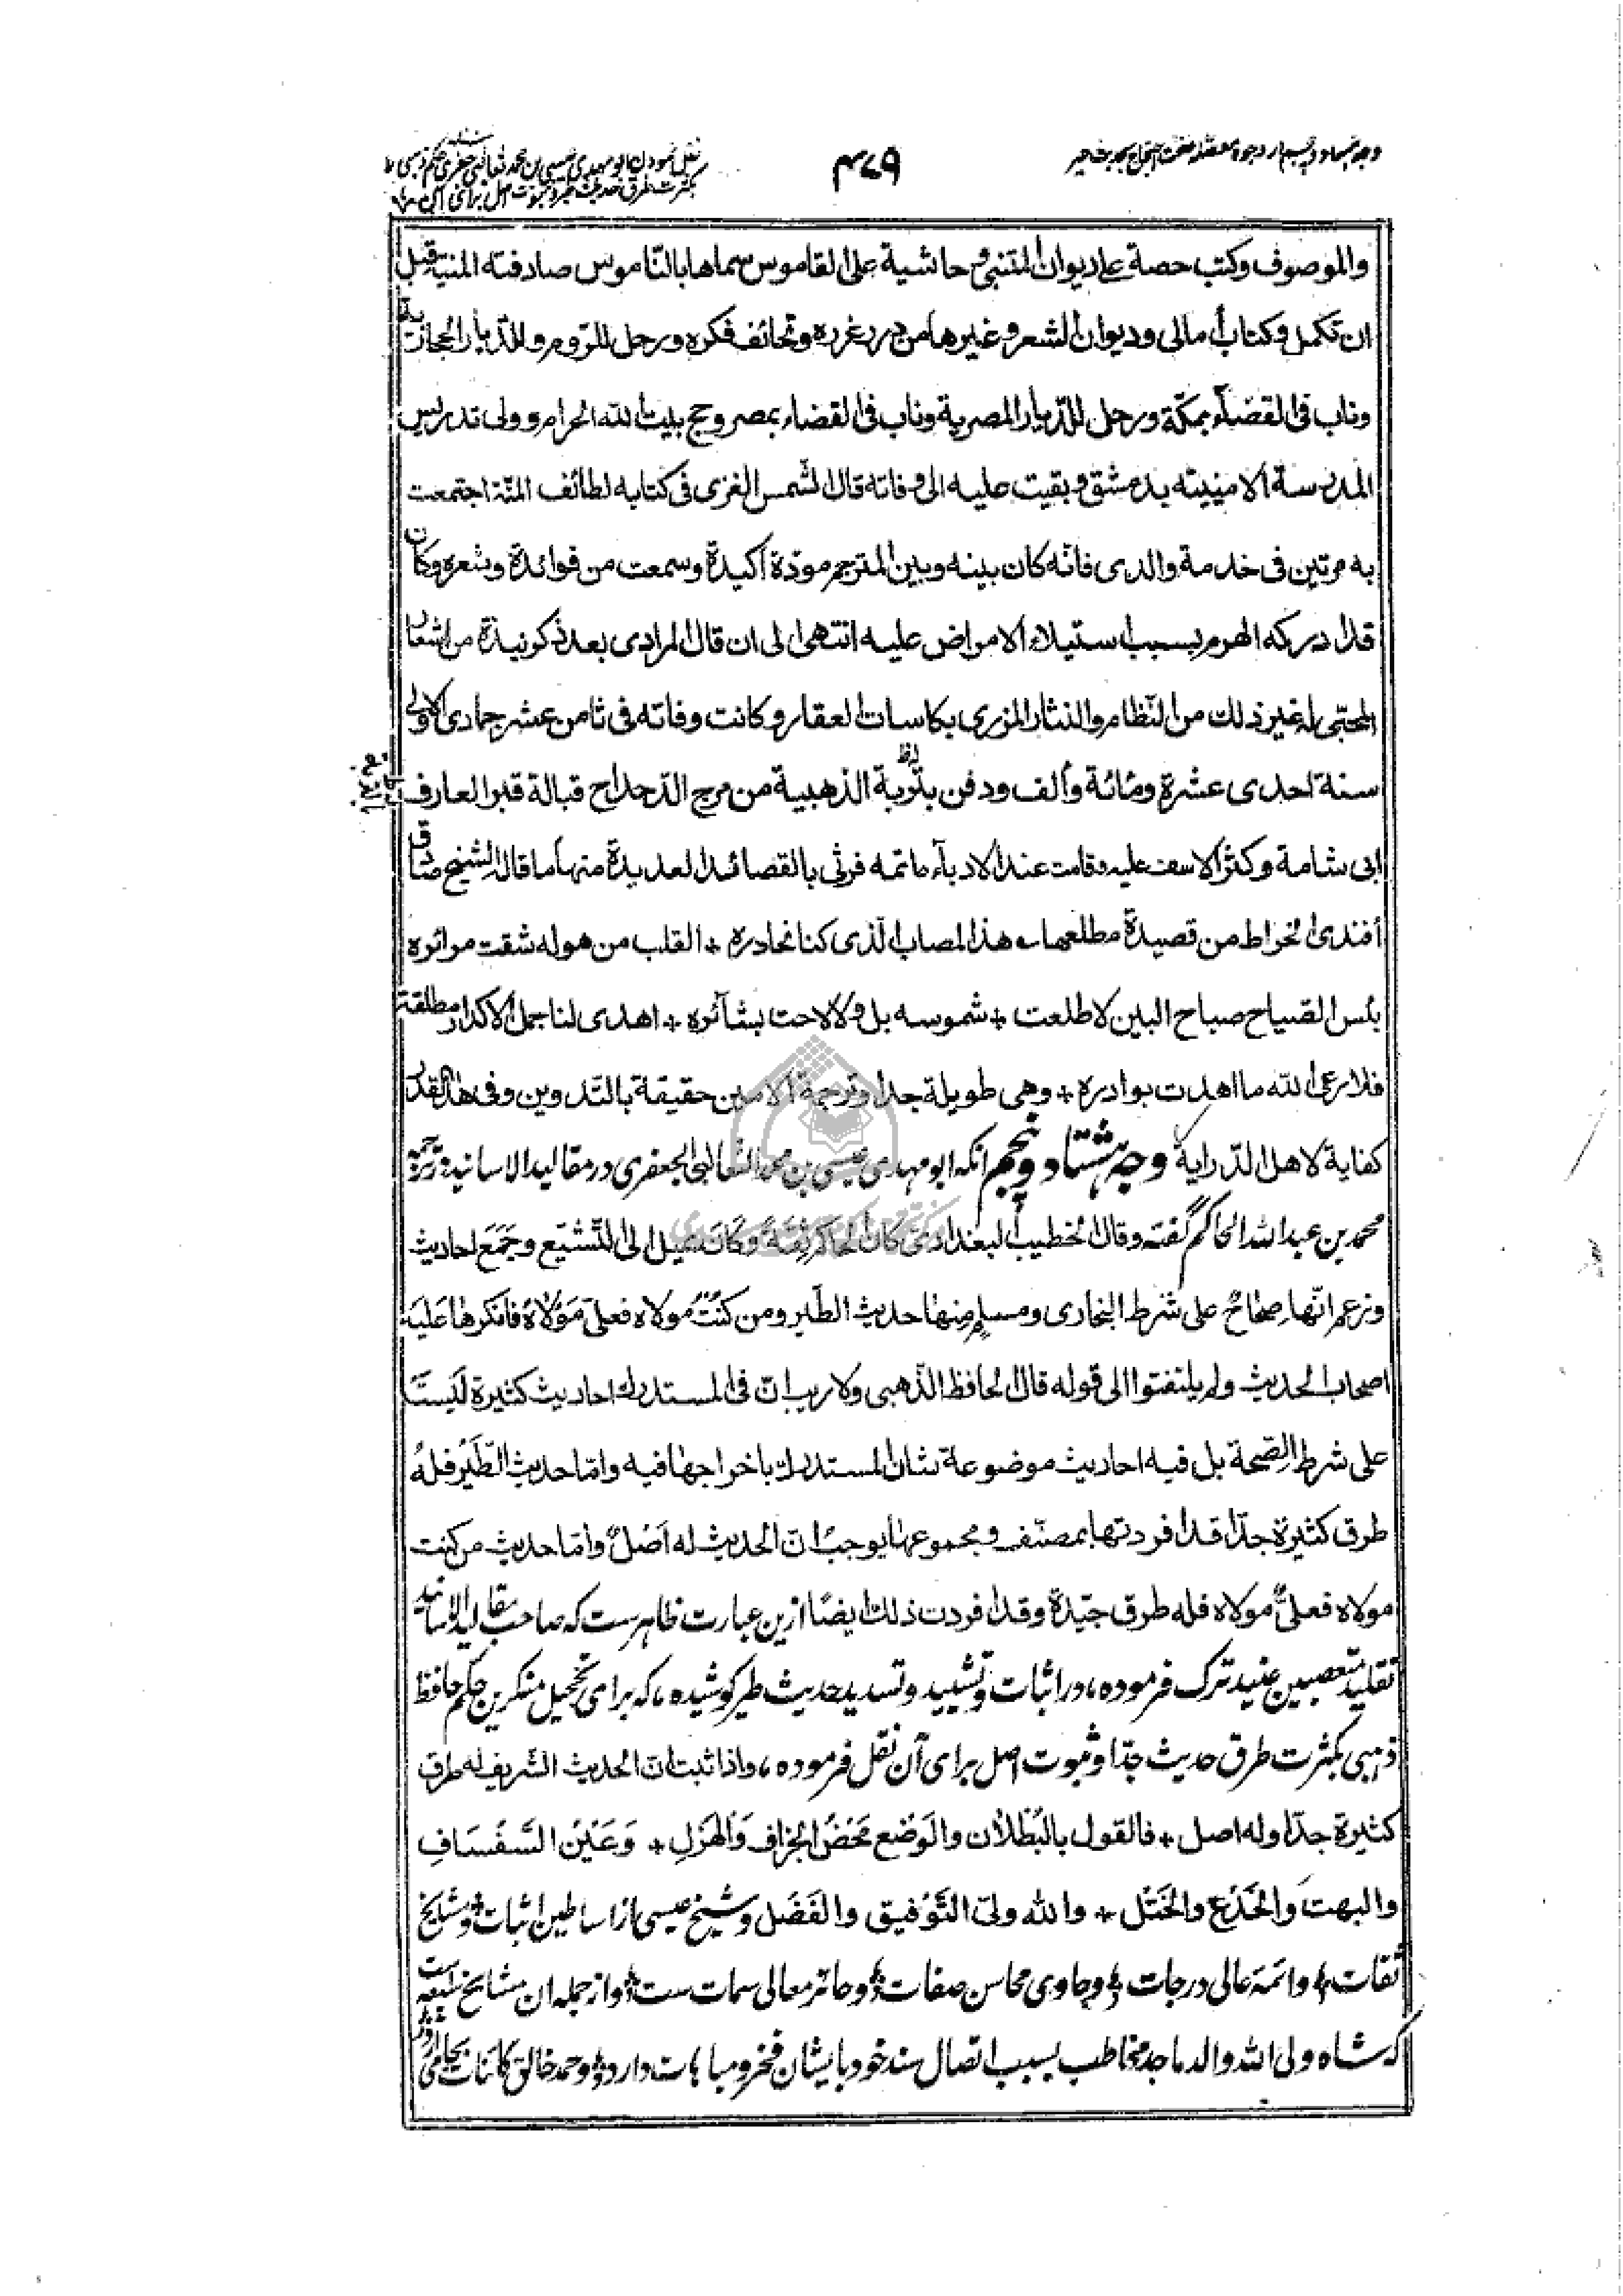 ۴۷۹
نقل نمودن ابو مهدی عیسی بن محمد ثعالبی جعفری حکم ذهبی
بکثرت طرق حدیث طیر و ثبوت اصل برای آن
والموصوف وکتب حصة علی دیوان المتنبی و حاشیة علی القاموس سماها بالناموس صادفته المنیة قبل
ان تکمل وکتاب أمالی ودیوان الشعر وغیرها من درر غرره وتحائف فکره ورحل للروم وللدیار الحجازیة
وناب فی القضاء بمکّة ورحل للدیار المصریة وناب فی القضاء بمصر وحج بیت الله الحرام وولی تدریس
المدرسة الامینیته بدمشق وبقیت علیه الی وفاته قال الشمس الغزی فی کتابه لطائف المنّة اجتمعت
به مرتین فی خدمة والدی فانّه کان بینه وبین المترجم مودّة أکیدة وسمعت من فوائدة وشعره وکان
قد ادرکه الهرم بسبب استیلاء الامراض علیه انتهی الی ان قال المرادی بعد ذکر نبذة من اشعار
المحبّی له غیر ذلک من النّظام والنثار المزری بکاسات العقار وکانت وفاته فی ثامن عشر جمادی الاولی
سنة احدی عشرة ومائة وألف ودفن بتربة الذهبیة من مرج الدّحداح قبالة قبر العارف
ابی شامة وکثر الاسف علیه وقامت عند الادبآء ماتمه فرثی بالقصائد العدیدة منها ما قال الشیخ صادق
أفندی الخراط من قصیدة مطلعها هذا المصاب الّذی کنا نحاذره + القلب من هوله شقت مرائره
بئس الصّیاح صباح البین لا طلعت + شموسه بل ولا لاحت بشآئره + اهدی لنا جمل الاکدار مطلقة
فلا رعی الله ما اهدت بوادره + وهی طویلة جدا وترجمة الامین حقیقة بالتّدوین وفی هذا القدر
کفایة لاهل الدّرایة وجه هشتاد و پنجم آنکه ابو مهدی عیسی بن محمد الثّعالبی الجعفری در مقالید الاسانید ترجمه
محمد بن عبد الله الحاکم گفته وقال الخطیب البغدادی کان الحاکم ثقة وکان یمیل الی التّشیّع وجَمَع احادیث
وزعم انّها صِحَاحٌ علی شرط البخاری ومسلم منها حدیث الطّیر ومن کنتُ مولاه فعلیّ مَوْلاهُ فانکرها عَلَیه
اصحاب الحدیث ولم یلتفتوا الی قوله قال الحافظ الذّهبی ولا ریب انّ فی المستدرک احادیث کثیرة لَیسَت
علی شرط الصّحة بل فیه احادیث موضوعة شان المستدرک باخراجها فیه وامّا حدیث الطّیْر فله
طرق کثیرة جدّا قد افردتها بمصنّف ومجموعها یوجب انّ الحدیث له اصْلٌ وامّا حدیث من کنت
مولاه فعلیّ مولاه فله طرق جیّدة وقد افردت ذلک ایضًا ازین عبارت ظاهرست که صاحب مقالید الاسانید
تقلید متعصبین عنید ترک فرموده، در اثبات و تشیید و تسدید حدیث طیر کوشیده، که برای تخجیل منکرین حکم حافظ
ذهبی بکثرت طرق حدیث جدّا و ثبوت اصل برای آن نقل فرموده، واذا ثبت انّ الحدیث الشّریف له طرق
کثیرة جدّا وله اصل + فالقول بالبُطْلان والوَضْع مَحْضُ الجزاف وَالهَزْلِ + وَعَیْنُ السَّفْسَافِ
والبهت وَالخَدْع والخَتْل + والله ولیّ التَّوْفیق والفَضْل وشیخ عیسی از اساطین اثبات، ومشایخ
ثقات، وائمه عالی درجات، وحاوی محاسن صفات، وحائز معالی سمات ست، و از جمله ان مشایخ سبعه است
که شاه ولی الله والد ماجد مخاطب بسبب اتصال سند خود بایشان فخر و مباهات دارد، وحمد خالق کائنات بجا می آرد